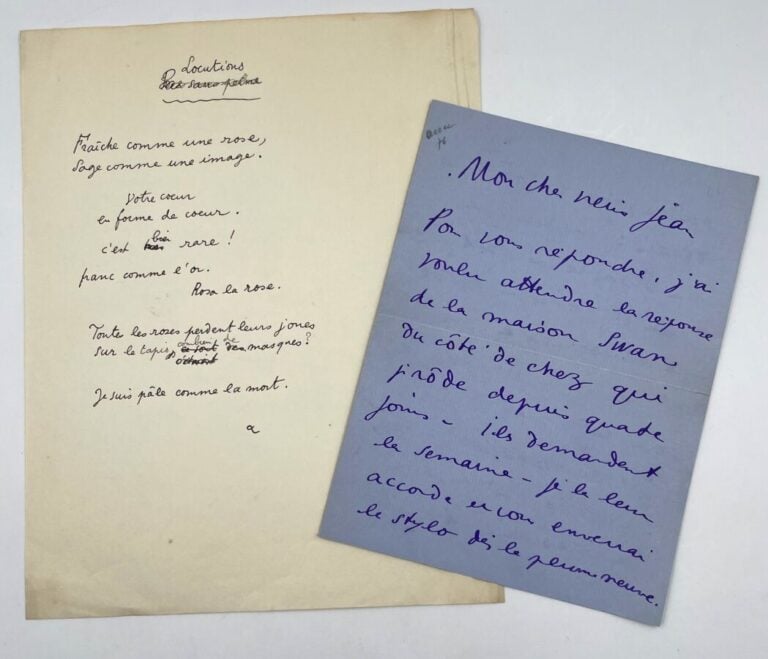 Locutions
Fraîche comme une rose,
Sage comme une image.
Votre coeur
en forme de coeur.
c'est bien rare !
franc comme l'or.
Rosa la rose.
Toutes les roses perdent leurs joues
sur le tapis, combien de masques ?
Je suis pâle comme la mort.
a
Mon cher Jean
Pour vous répondre, j'ai
voulu attendre la réponse
de la maison Swan
du côté de chez qui
je rôde depuis quatre
jours - ils demandent
la semaine - je la leur
accorde et vous enverrai
le stylo dès la plume neuve.